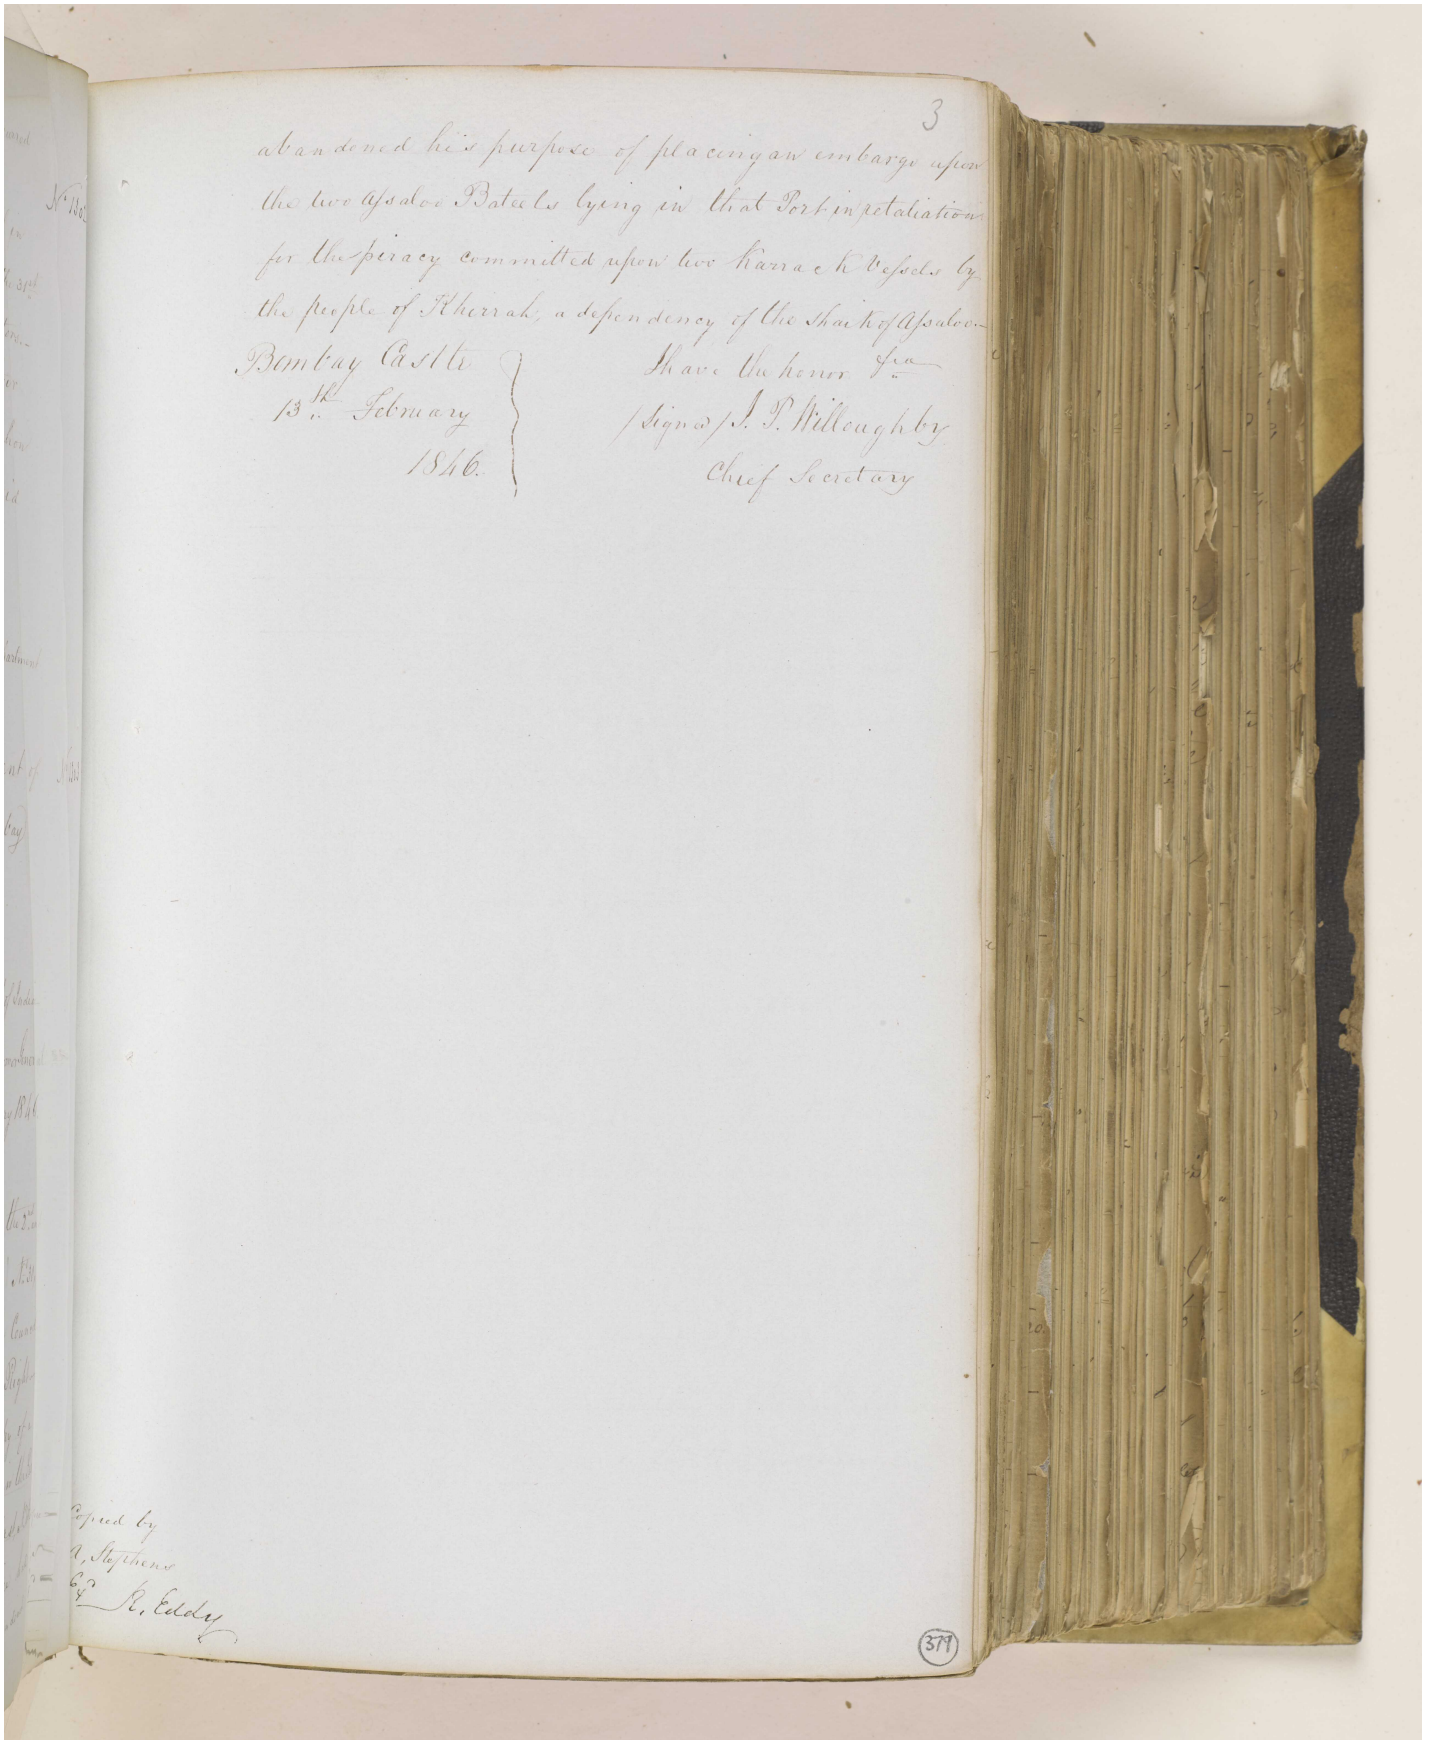 3
abandoned his purpose of placing an embargo upon
the two Assaloo Bateels lying in that Port in retaliation
for the piracy committed upon two Karrack Vessels by
the people of Kherrah, a dependency of the Shaik of Assaloo.—
Bombay Castle
13th February
1846.
I have the honor &ca
/Signed/ J. P. Willoughby
Chief Secretary
Copied by
A, Stephens
Exd R. Eddy
379